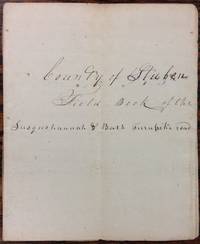 County of Stuben
Field Book of the
Susquehannah & Bath turnpike road